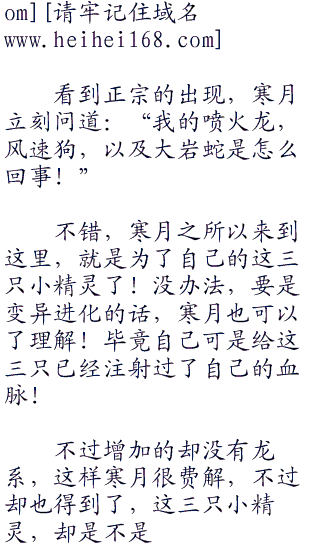 om][请牢记住域名
www.heihei168.com]
看到正宗的出现，寒月
立刻问道：“我的喷火龙，
风速狗，以及大岩蛇是怎么
回事！”
不错，寒月之所以来到
这里，就是为了自己的这三
只小精灵了！没办法，要是
变异进化的话，寒月也可以
了理解！毕竟自己可是给这
三只已经注射过了自己的血
脉！
不过增加的却没有龙
系，这样寒月很费解，不过
却也得到了，这三只小精
灵，却是不是